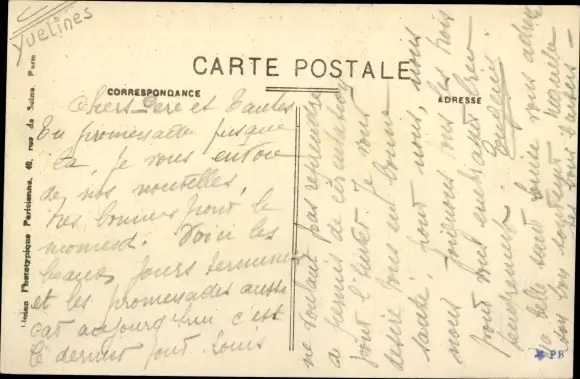 Yvelines
CARTE POSTALE
CORRESPONDANCE
ADRESSE
Union Phototypique Parisienne, rue de Seine, Paris
Chers Père et Tantes
En promenade jusque
là, je vous envoie
de nos nouvelles,
très bonnes pour le
moment. Voici les
beaux jours terminés
et les promenades aussi
car aujourd'hui c'est
le dernier jour Louis
ne voulant pas reprendre
de permis de circulation
pour l'hiver. Je vous
désire tous en bonne
santé, pour nous, nous
nous joignons tous les trois
pour vous embrasser bien
tendrement.
belle sœur Louise vous
bon souvenir
PB